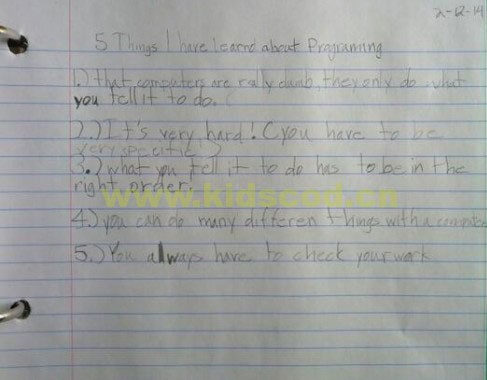 2-12-14
5 Things I have learnd about Programing
1.) that computers are rally dumb, they only do what
you tell it to do.
2.) It's very hard! (you have to be
very specific)
3.) what you tell it to do has to be in the
right order.
www.kidscod.cn
4.) you can do many differen things with a computer
5.) You always have to check your work.